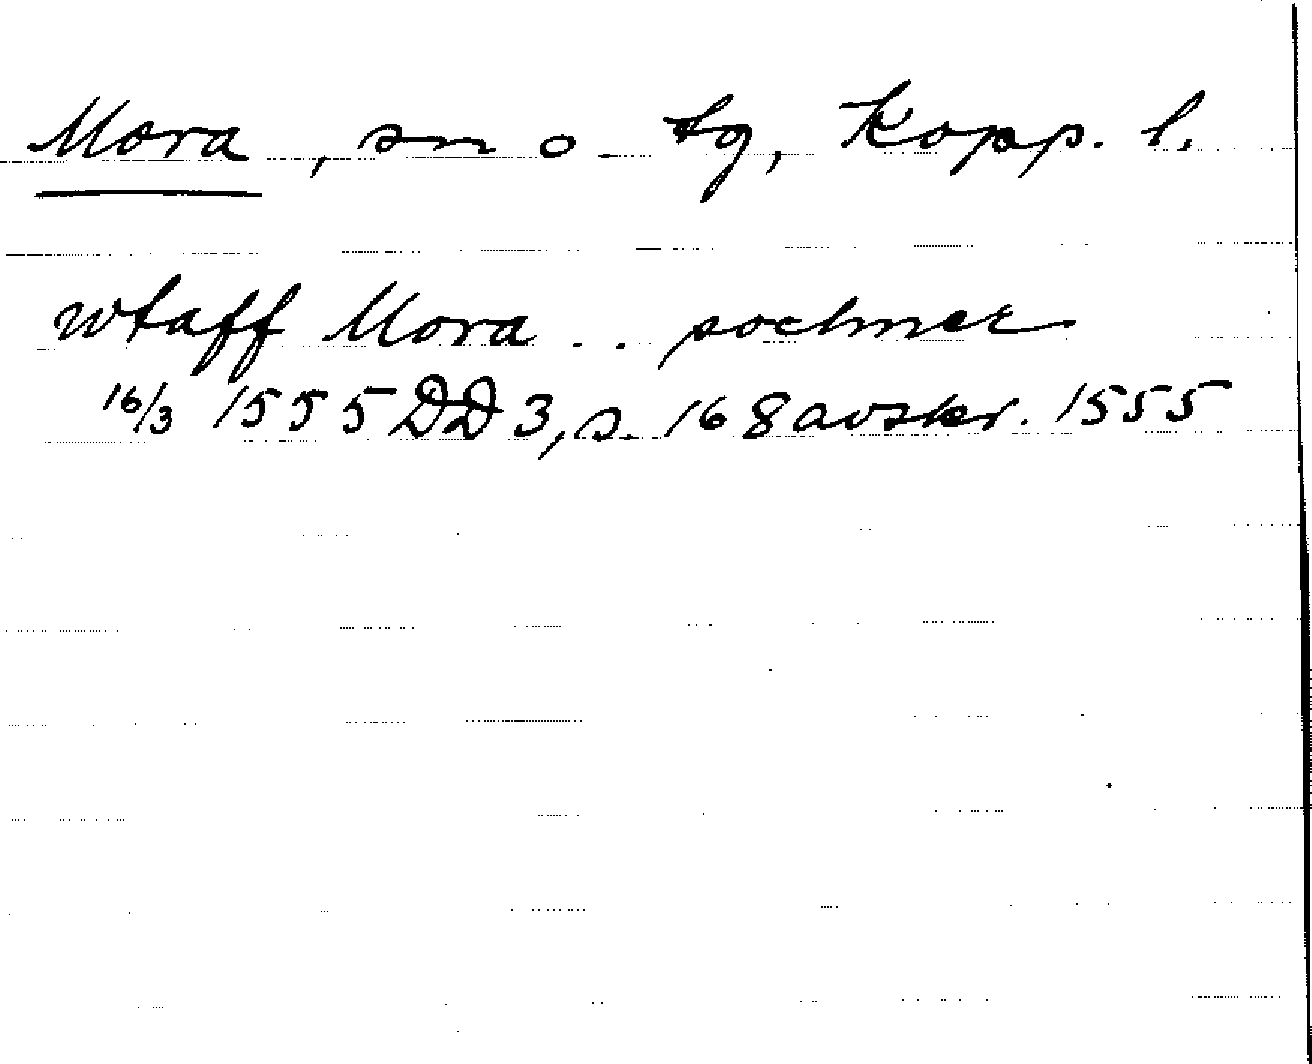 Mora, sn o tg, Kopp. l.
wtaff Mora .. sochner
16/3 1555 DD 3, s. 168 avskr. 1555